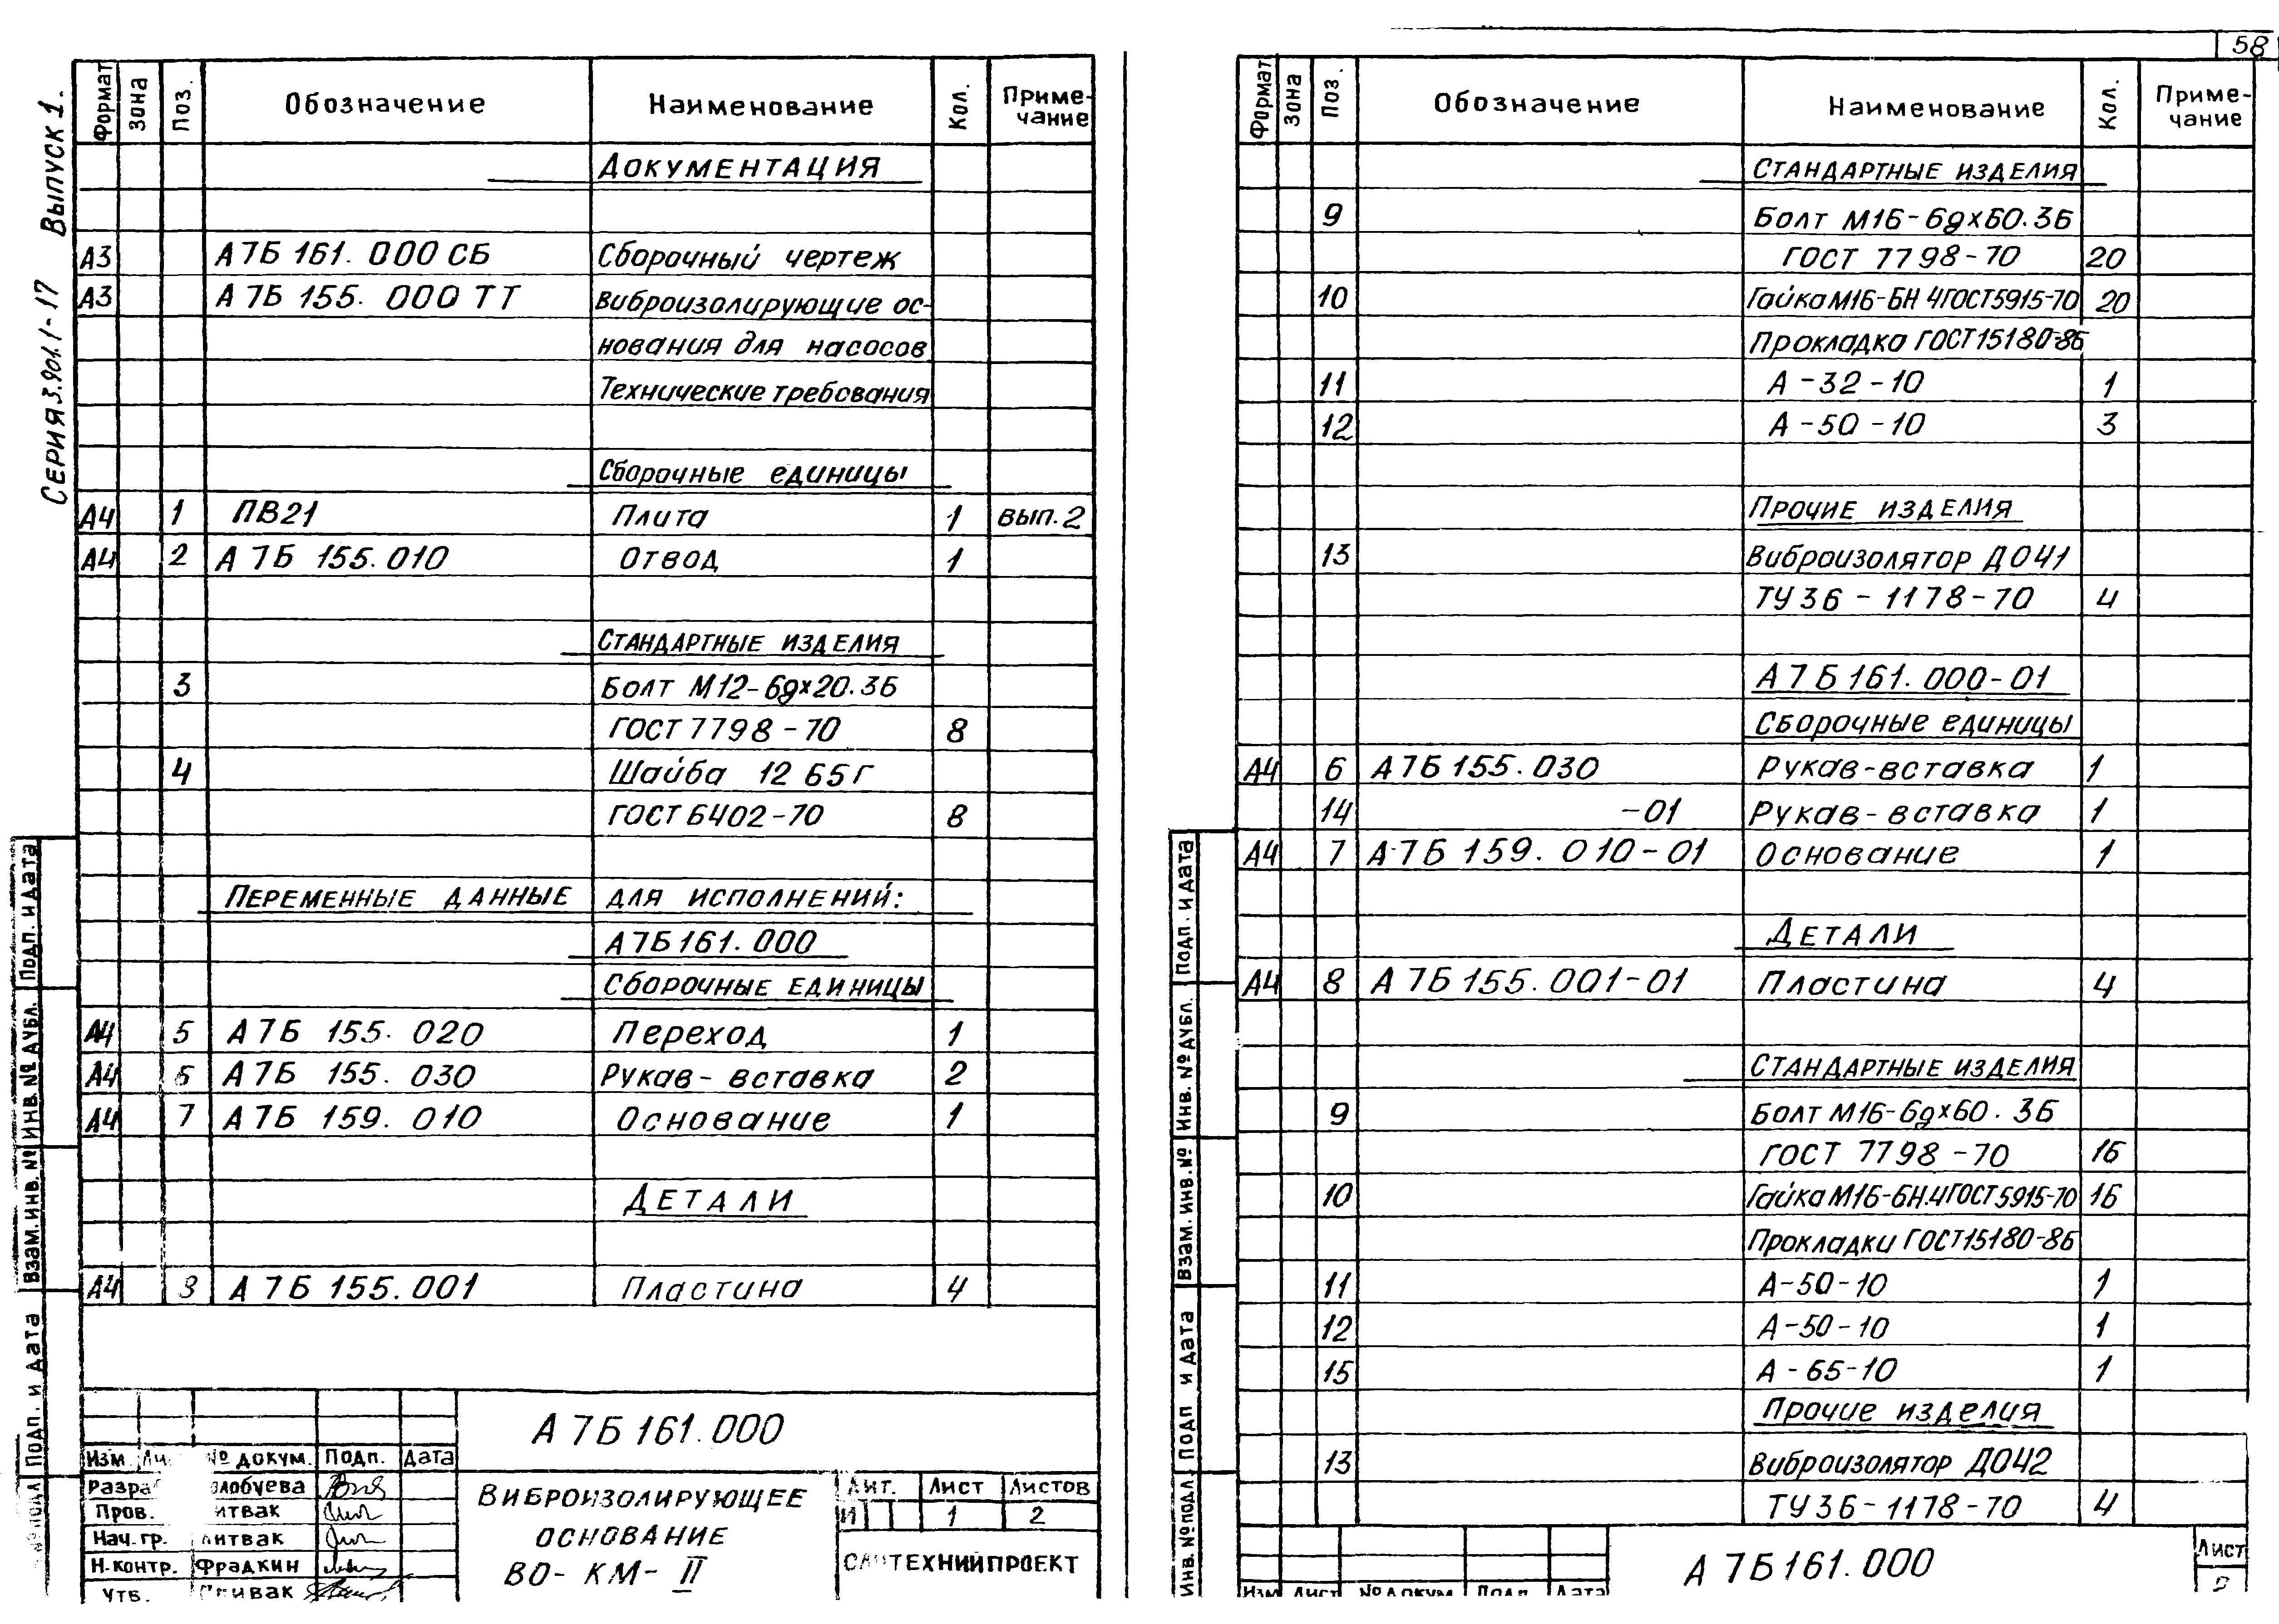 58
Серия 3.901.1-17 Выпуск 1.
Формат Зона Поз. Обозначение Наименование Кол. Приме-
чание
Документация
А3 А7Б 161.000 СБ Сборочный чертеж
А3 А7Б 155.000 ТТ Виброизолирующие ос-
нования для насосов
Технические требования
Сборочные единицы
А4 1 ПВ21 Плита 1 вып.2
А4 2 А7Б 155.010 Отвод 1
Стандартные изделия
3 Болт М12-6gх20.36
ГОСТ 7798-70 8
4 Шайба 12 65Г
ГОСТ 6402-70 8
Переменные данные для исполнений:
А7Б161.000
Сборочные единицы
А4 5 А7Б 155.020 Переход 1
А4 6 А7Б 155.030 Рукав-вставка 2
А4 7 А7Б 159.010 Основание 1
Детали
А4 8 А7Б 155.001 Пластина 4
А7Б161.000
Изм. № докум. Подп. Дата
Пров.
Нач.гр.
Н.контр. Фрадкин
Утв.
Виброизолирующее
основание
ВО-КМ-II
Лит. Лист Листов
И 1 2
САНТЕХНИИПРОЕКТ
Подп. и дата
Инв. № дубл.
Взам. инв. №
Подп. и дата
Формат Зона Поз. Обозначение Наименование Кол. Приме-
чание
Стандартные изделия
9 Болт М16-6gх60.36
ГОСТ 7798-70 20
10 Гайка М16-6Н 4ГОСТ5915-70 20
Прокладка ГОСТ15180-86
11 А-32-10 1
12 А-50-10 3
Прочие изделия
13 Виброизолятор ДО41
ТУ36-1178-70 4
А7Б161.000-01
Сборочные единицы
А4 6 А7Б155.030 Рукав-вставка 1
14 -01 Рукав-вставка 1
А4 7 А7Б 159.010-01 Основание 1
Детали
А4 8 А7Б155.001-01 Пластина 4
Стандартные изделия
9 Болт М16-6gх60.36
ГОСТ 7798-70 16
10 Гайка М16-6Н.4ГОСТ5915-70 16
Прокладки ГОСТ15180-86
11 А-50-10 1
12 А-50-10 1
15 А-65-10 1
Прочие изделия
13 Виброизолятор ДО42
ТУ36-1178-70 4
Изм Лист № докум Подп Дата
А7Б161.000
Лист
2
Подп. и дата
Инв. № дубл.
Взам. инв. №
Подп и дата
Инв. № подл.